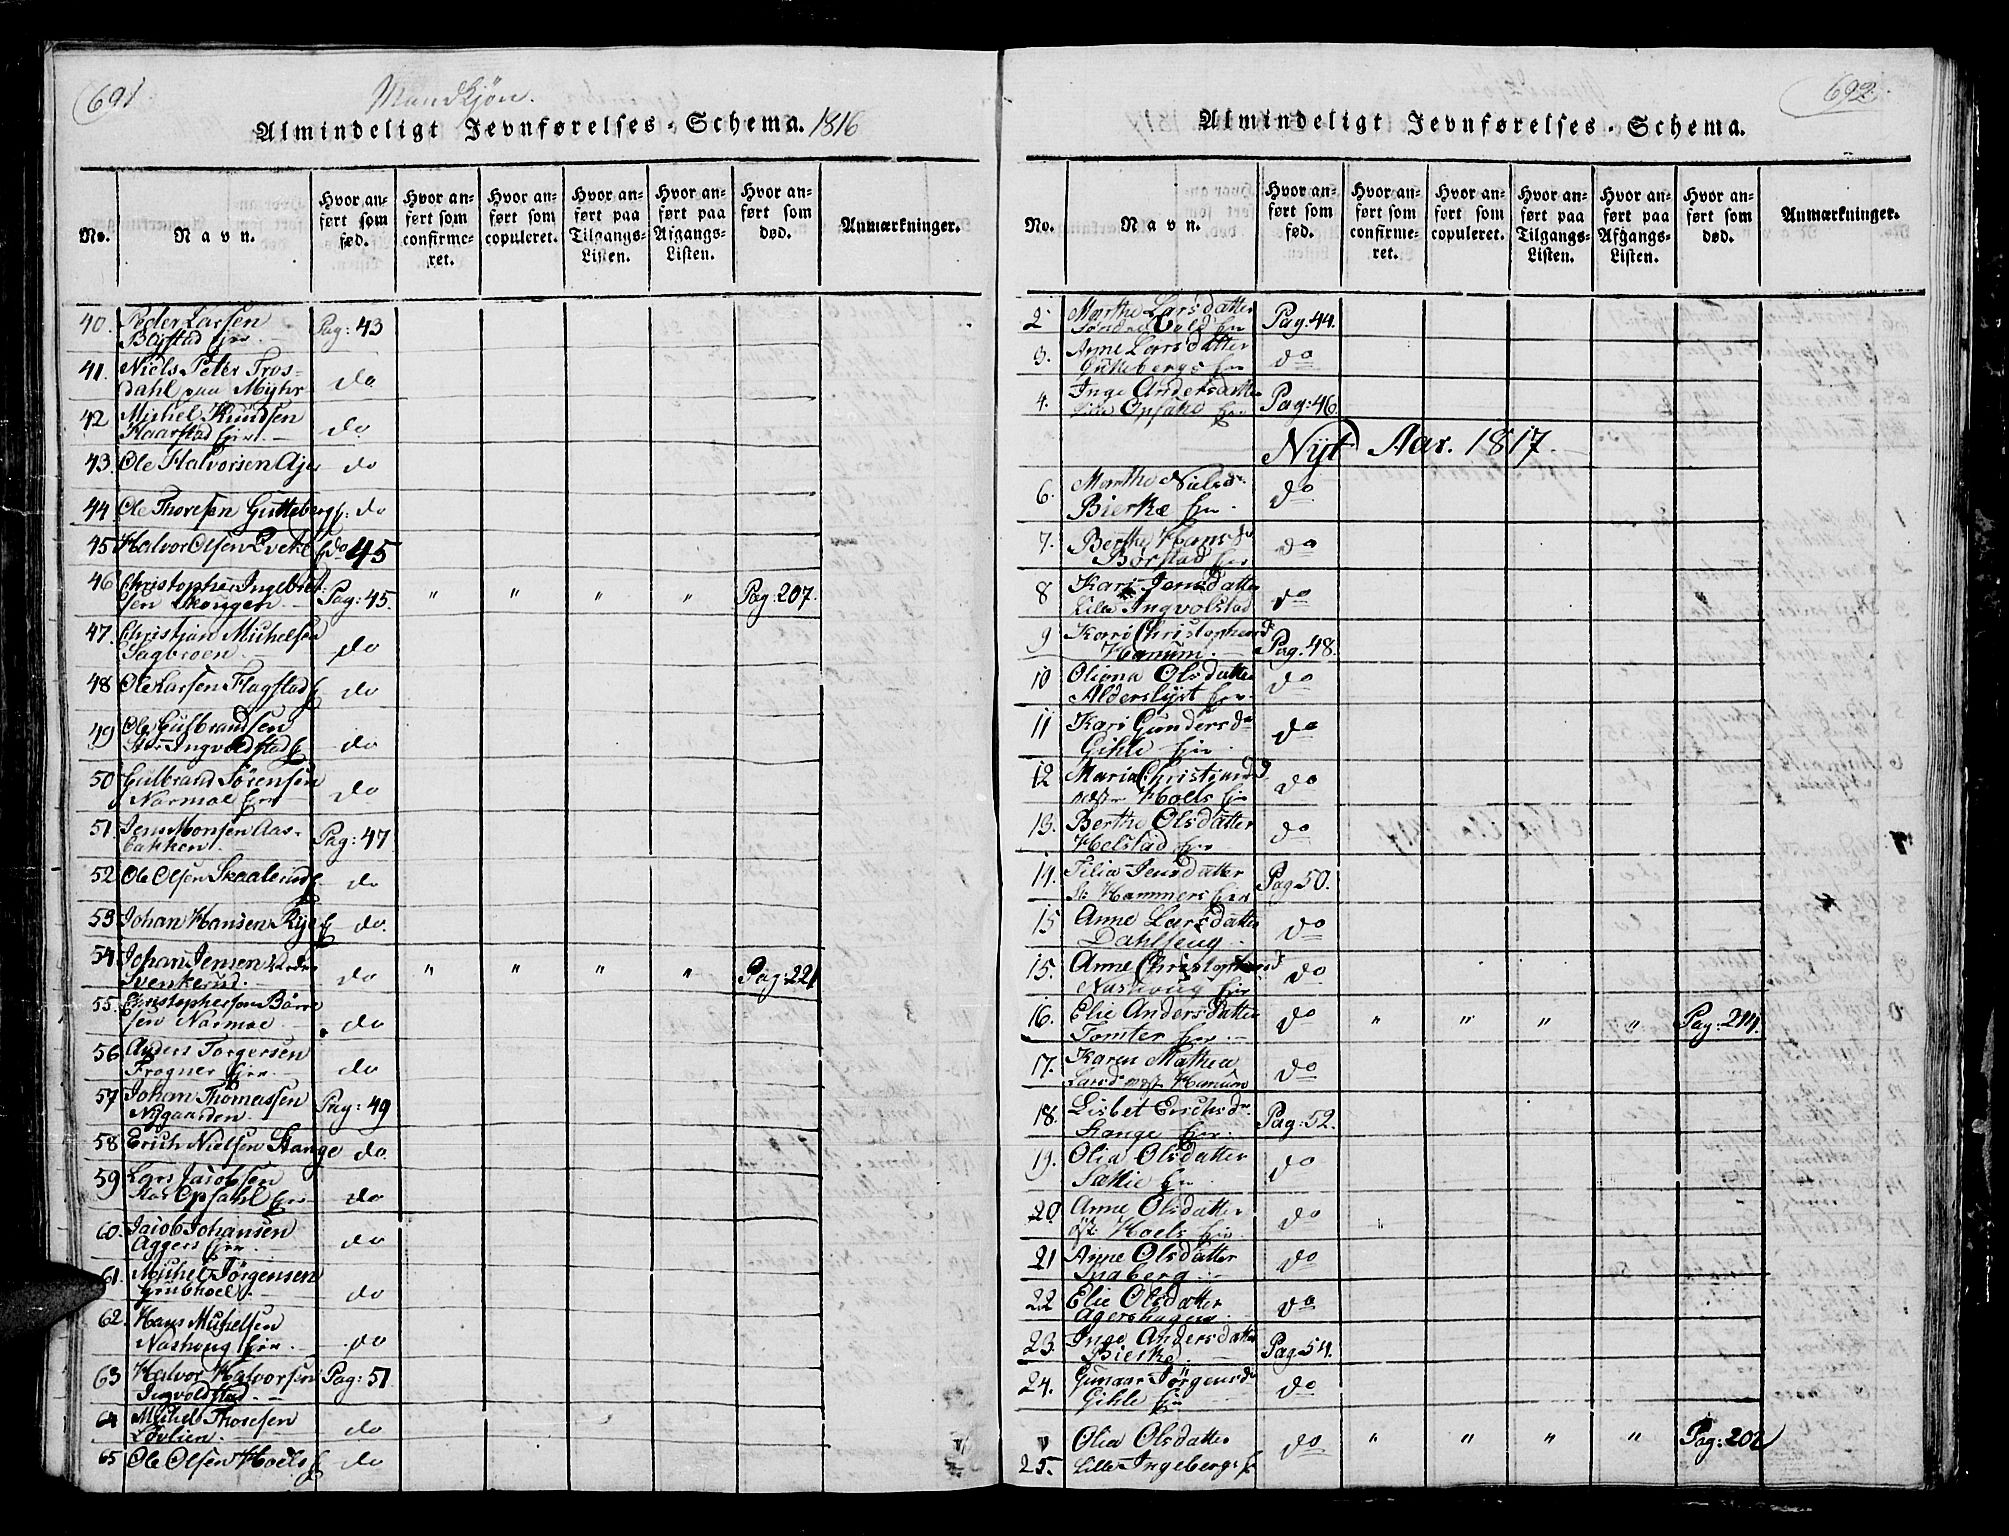 691
Mandkjøn.
Almindeligt Jevnførelses-Schema. 1816
No.
Navn.
Hvor anført som fød.
Hvor anført som confirmeret.
Hvor anført som copuleret.
Hvor anført paa Tilgangs-Listen.
Hvor anført paa Afgangs-Listen.
Hvor anført som død.
Anmærkninger.
40. Peder Larsen Pag: 43
Bagstad Eier
41. Niels Peter Tros-
dahl paa Myhr do
42 Michel Knudsen
Haarstad Eier do
43. Ole Halvorsen Aje do
44 Ole Thoresen Gutteberg do
45 Halvor Olsen do 45
46 Christopher Ingebret-
sen Skougen Pag: 45. " " " " Pag: 207.
47. Christian Michelsen
Sagbroen do
48 Ole Larsen Flagstad do
49 Ole Gulbrandsen
Stor Ingvoldstad do
50 Gulbrand Sörensen
Narmoe do
51. Jens Monsen Aas-
bakken Pag: 47
52 Ole Olsen Skaalerud do
53 Johan Hansen Rye do.
54 Johan Jensen
Svenkerud do " " " " Pag: 221
55. Christophersen Börre
sen Narmoe do
56 Anders Torgersen
Frogner do
57 Johan Thomassen
Nygaarden Pag: 49
58 Erich Nielsen Stange do
59 Lars Jacobsen
Stor Opsahl do
60. Jacob Johansen
Aggers do
61. Michel Jörgensen
Grubhoel do
62. Hans Michelsen
Nashoug do
63 Halvor Halvorsen Pag: 51
Ingvoldstad
64 Michel Thoresen
Lövlien do
65 Ole Olsen Hoels do
692
Almindeligt Jevnførelses-Schema.
No.
Navn.
Hvor anført som fød.
Hvor anført som confirmeret.
Hvor anført som copuleret.
Hvor anført paa Tilgangs-Listen.
Hvor anført paa Afgangs-Listen.
Hvor anført som død.
Anmærkninger.
2 Marthe Larsdatter
Söndre Vold Pag: 44.
3. Anne Larsdatter
Guttebergs do
4. Inge Andersdatter
Lille Opsahl Pag: 46.
Nyt Aar. 1817.
6. Marthe Nielsd.
Bierke do
7. Berthe Hansd.
Borstad do
8 Kari Jensdatter
Lille Ingvolstad do
9 Kari Christophersd.
Hanum. Pag. 48.
10 Oliana Olsdatter
Alderslyst do
11 Kari Gundersd.
Gihle do
12 Maria Christiansd.
Hoels do
13. Berthe Olsdatter
Helstad do
14. Silia Jensdatter Pag 50.
St. Hammers
15 Anne Larsdatter
Dahlseng do
15. Anne Christophersd.
Nashoug do
16. Elie Andersdatter
Tomter do " " " " Pag: 214.
17. Karen Mathea
Larsd. Hanum do
18. Lisbet Erichsd.
Stange Pag: 52.
19. Olia Olsdatter
Sattie do
20. Anne Olsdatter
Hoels do
21 Anne Olsdatter
Inaberg do
22 Elie Olsdatter
Agershagen do
23. Inge Andersdatter
Bierke Pag 54.
24. Gunaar Jörgensd.
Gihle do
Olia Olsdatter
25. Lille Ingebergs do " " " " Pag: 202